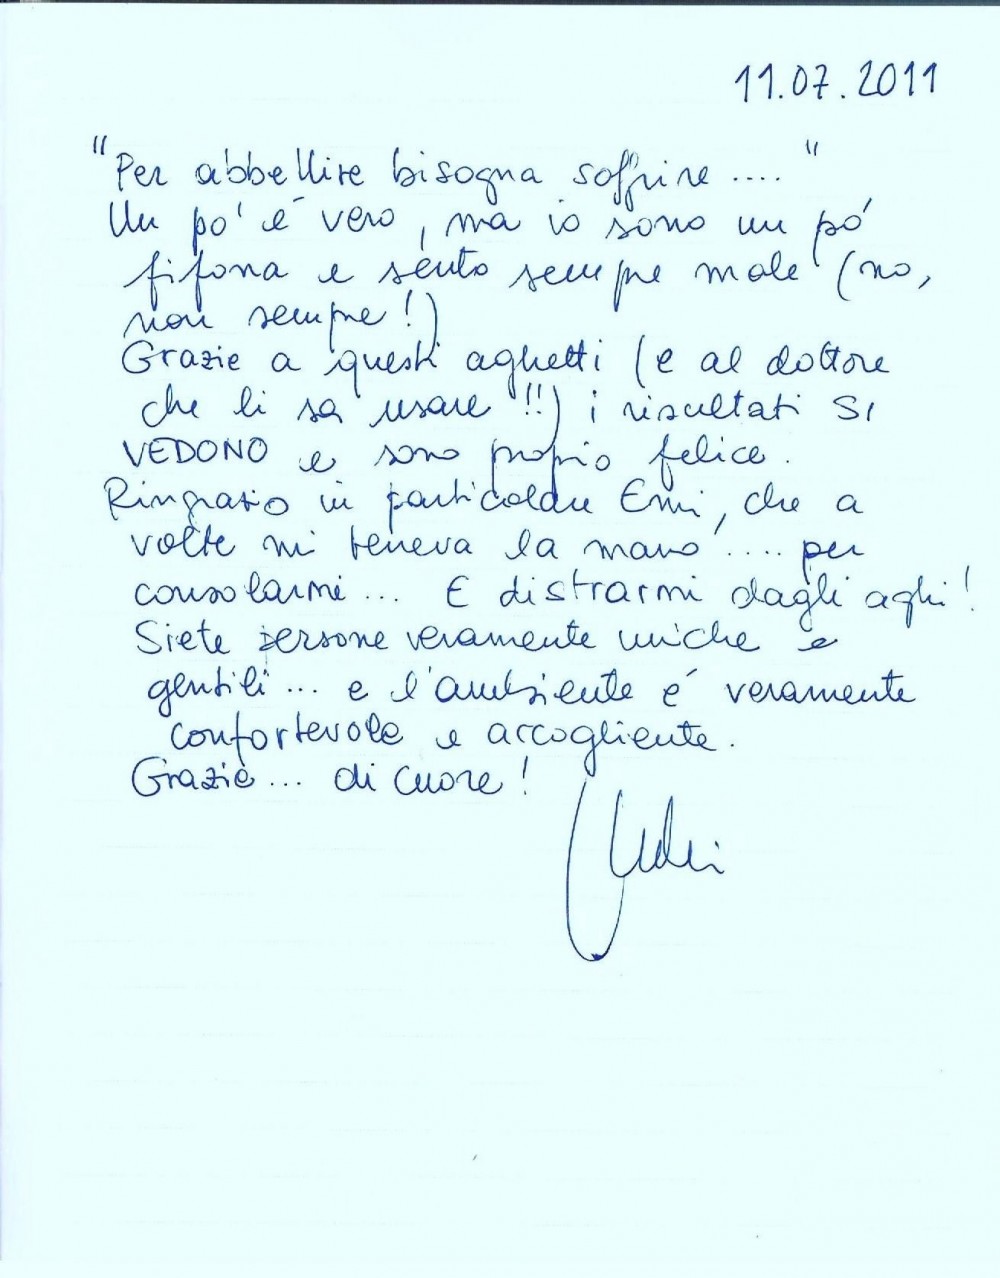 11.07.2011
"Per abbellire bisogna soffrire ...."
Un po' é vero, ma io sono un pó
fifona e sento sempre male (no,
non sempre!)
Grazie a questi aghetti (e al dottore
che li sa usare!!) i risultati SI
VEDONO e sono proprio felice.
Ringrazio in particolare Emi, che a
volte mi teneva la mano .... per
consolarmi ... E distrarmi dagli aghi!
Siete persone veramente uniche e
gentili ... e l'ambiente é veramente
confortevole e accogliente.
Grazie ... di cuore!